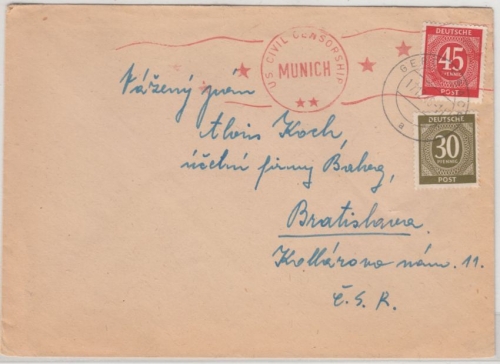 U.S. CIVIL CENSORSHIP
MUNICH
DEUTSCHE
45
PFENNIG
POST
DEUTSCHE
30
PFENNIG
POST
Vážený pán
Alois Koch,
účetní firmy
Bratislava
Kollárovo nám. 11.
Č. S. R.